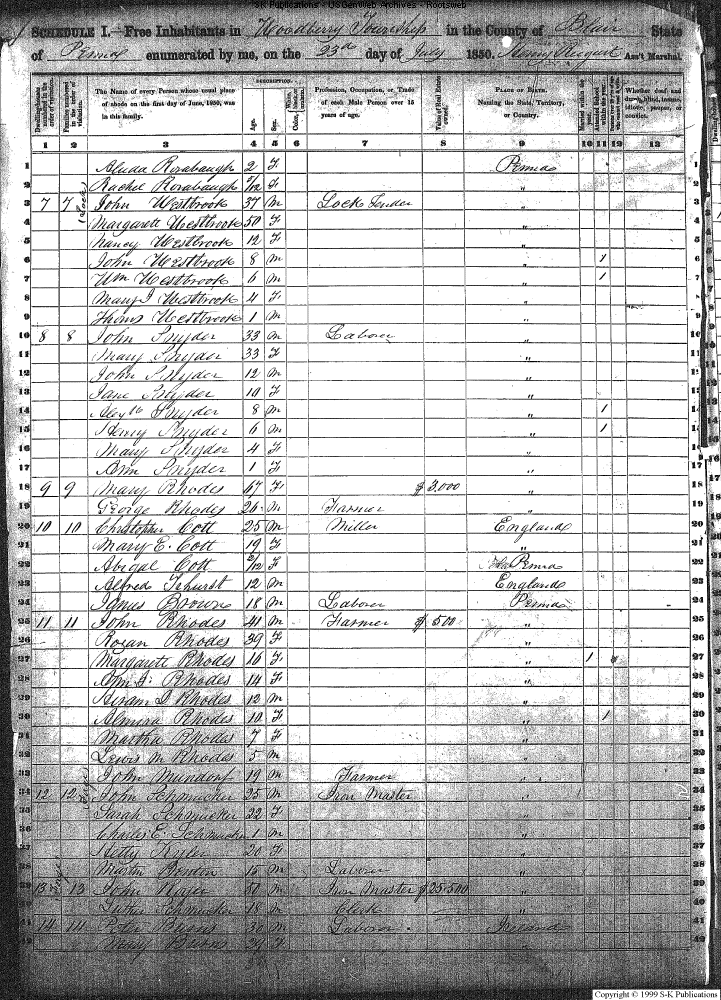 S-K Publications - USGenWeb Archives - Rootsweb
SCHEDULE I.—Free Inhabitants in Woodberry Township in the County of Blair State
of Penna enumerated by me, on the 23d day of July 1850. Ass't Marshal.
DESCRIPTION.
Dwelling-houses numbered in the order of visitation.
Families numbered in the order of visitation.
The Name of every Person whose usual place of abode on the first day of June, 1850, was in this family.
Age.
Sex.
Color, White, black, or mulatto.
Profession, Occupation, or Trade of each Male Person over 15 years of age.
Value of Real Estate owned.
PLACE OF BIRTH. Naming the State, Territory, or Country.
Married within the year.
Attended School within the year.
Whether deaf and dumb, blind, insane, idiotic, pauper, or convict.
1 2 3 4 5 6 7 8 9 10 11 12 13
1 Rorabaugh 2 F Penna 1
2 Rachel Rorabaugh /12 F " 2
3 7 7 John Westbrook 37 M Lock Tender " 3
4 Margarett Westbrook 30 F " 4
5 Nancy Westbrook 12 F " 5
6 John Westbrook 8 M " 1 6
7 Wm Westbrook 6 M " 1 7
8 Mary J Westbrook 4 F " 8
9 Thoms Westbrook 1 M " 9
10 8 8 John Snyder 33 M Laborer " 10
11 Mary Snyder 33 F " 11
12 John Snyder 12 M " 12
13 Jane Snyder 10 F " 13
14 Snyder 8 M " 1 14
15 Henry Snyder 6 M " 1 15
16 Mary Snyder 4 F " 16
17 Ann Snyder 1 F " 17
18 9 9 Mary Rhodes 67 F $ 3,000 " 18
19 George Rhodes 26 M Farmer " 19
20 10 10 Christopher Cott 25 M Miller England 20
21 Mary E. Cott 19 F " 21
22 Abigal Cott /12 F Penna 22
23 Alfred 12 M England 23
24 James Brown 18 M Laborer Penna 24
25 11 11 John Rhodes 41 M Farmer $ 500 " 25
26 Rosan Rhodes 39 F " 26
27 Margarett Rhodes 16 F " 1 27
28 Rhodes 14 F " 28
29 Hiram D Rhodes 12 M " 29
30 Almira Rhodes 10 F " 1 30
31 Martha Rhodes 7 F " 31
32 Lewis M Rhodes 5 M " 32
33 John Mundorf 19 M Farmer " 33
34 12 12 John Schmucker 25 M Iron Master " 34
35 Sarah Schmucker 22 F " 35
36 Charles E. Schmucker 1 M " 36
37 Hetty 20 F " 37
38 Martin 15 M Laborer " 38
39 13 13 John 51 M Iron Master $ 25.500 " 39
40 Luther Schmucker 18 M Clerk " 40
41 14 14 Peter Burns 30 M Laborer Ireland 41
42 Mary Burns 24 F " 42
Copyright © 1999 S-K Publications